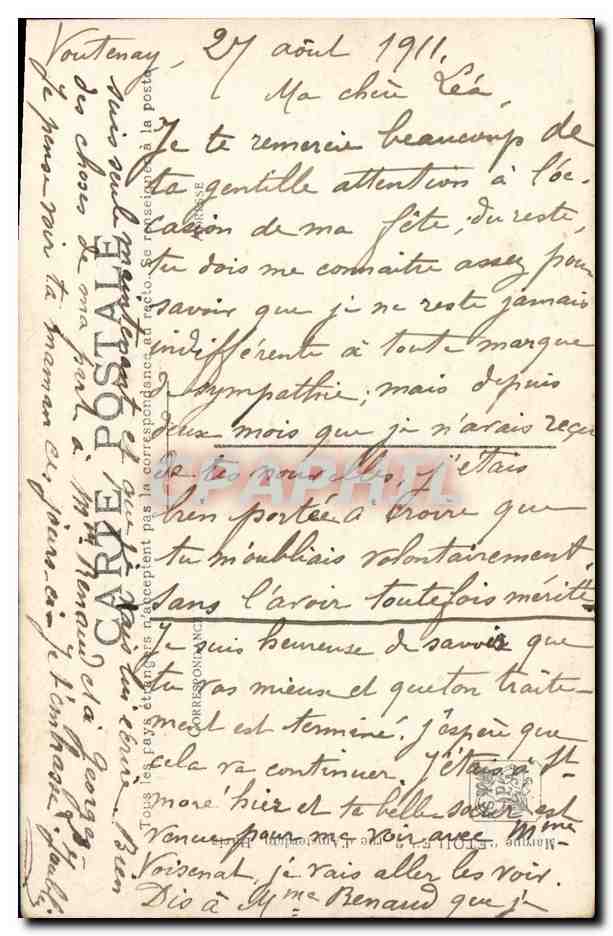 Voutenay, 27 août 1911.
Ma chère Léa,
Je te remercie beaucoup de
ta gentille attention à l'oc-
casion de ma fête, du reste,
tu dois me connaître assez pour
savoir que je ne reste jamais
indifférente à toute marque
de sympathie; mais depuis
deux mois que je n'avais reçu
de tes nouvelles, j'étais
bien portée à croire que
tu m'oubliais volontairement,
sans l'avoir toutefois mérité.
Je suis heureuse de savoir que
tu vas mieux et que ton traite-
ment est terminé. J'espère que
cela va continuer. J'étais à St-
moré hier et ta belle sœur est
venue pour me voir avec Mme
Voisenat, je vais aller les voir.
Dis à Mme Renaud que je
suis seul maintenant et que je vais lui écrire. Bien
des choses de ma part à Mme Renaud et à Georges
Je pense voir ta maman ces jours-ci. Je t'embrasse
CARTE POSTALE
Tous les pays étrangers n'acceptent pas la correspondance au recto. Se renseigner à la poste
CORRESPONDANCE
ADRESSE
Marque "ETOILE"
rue d'Amsterdam, Paris
CPARTHL